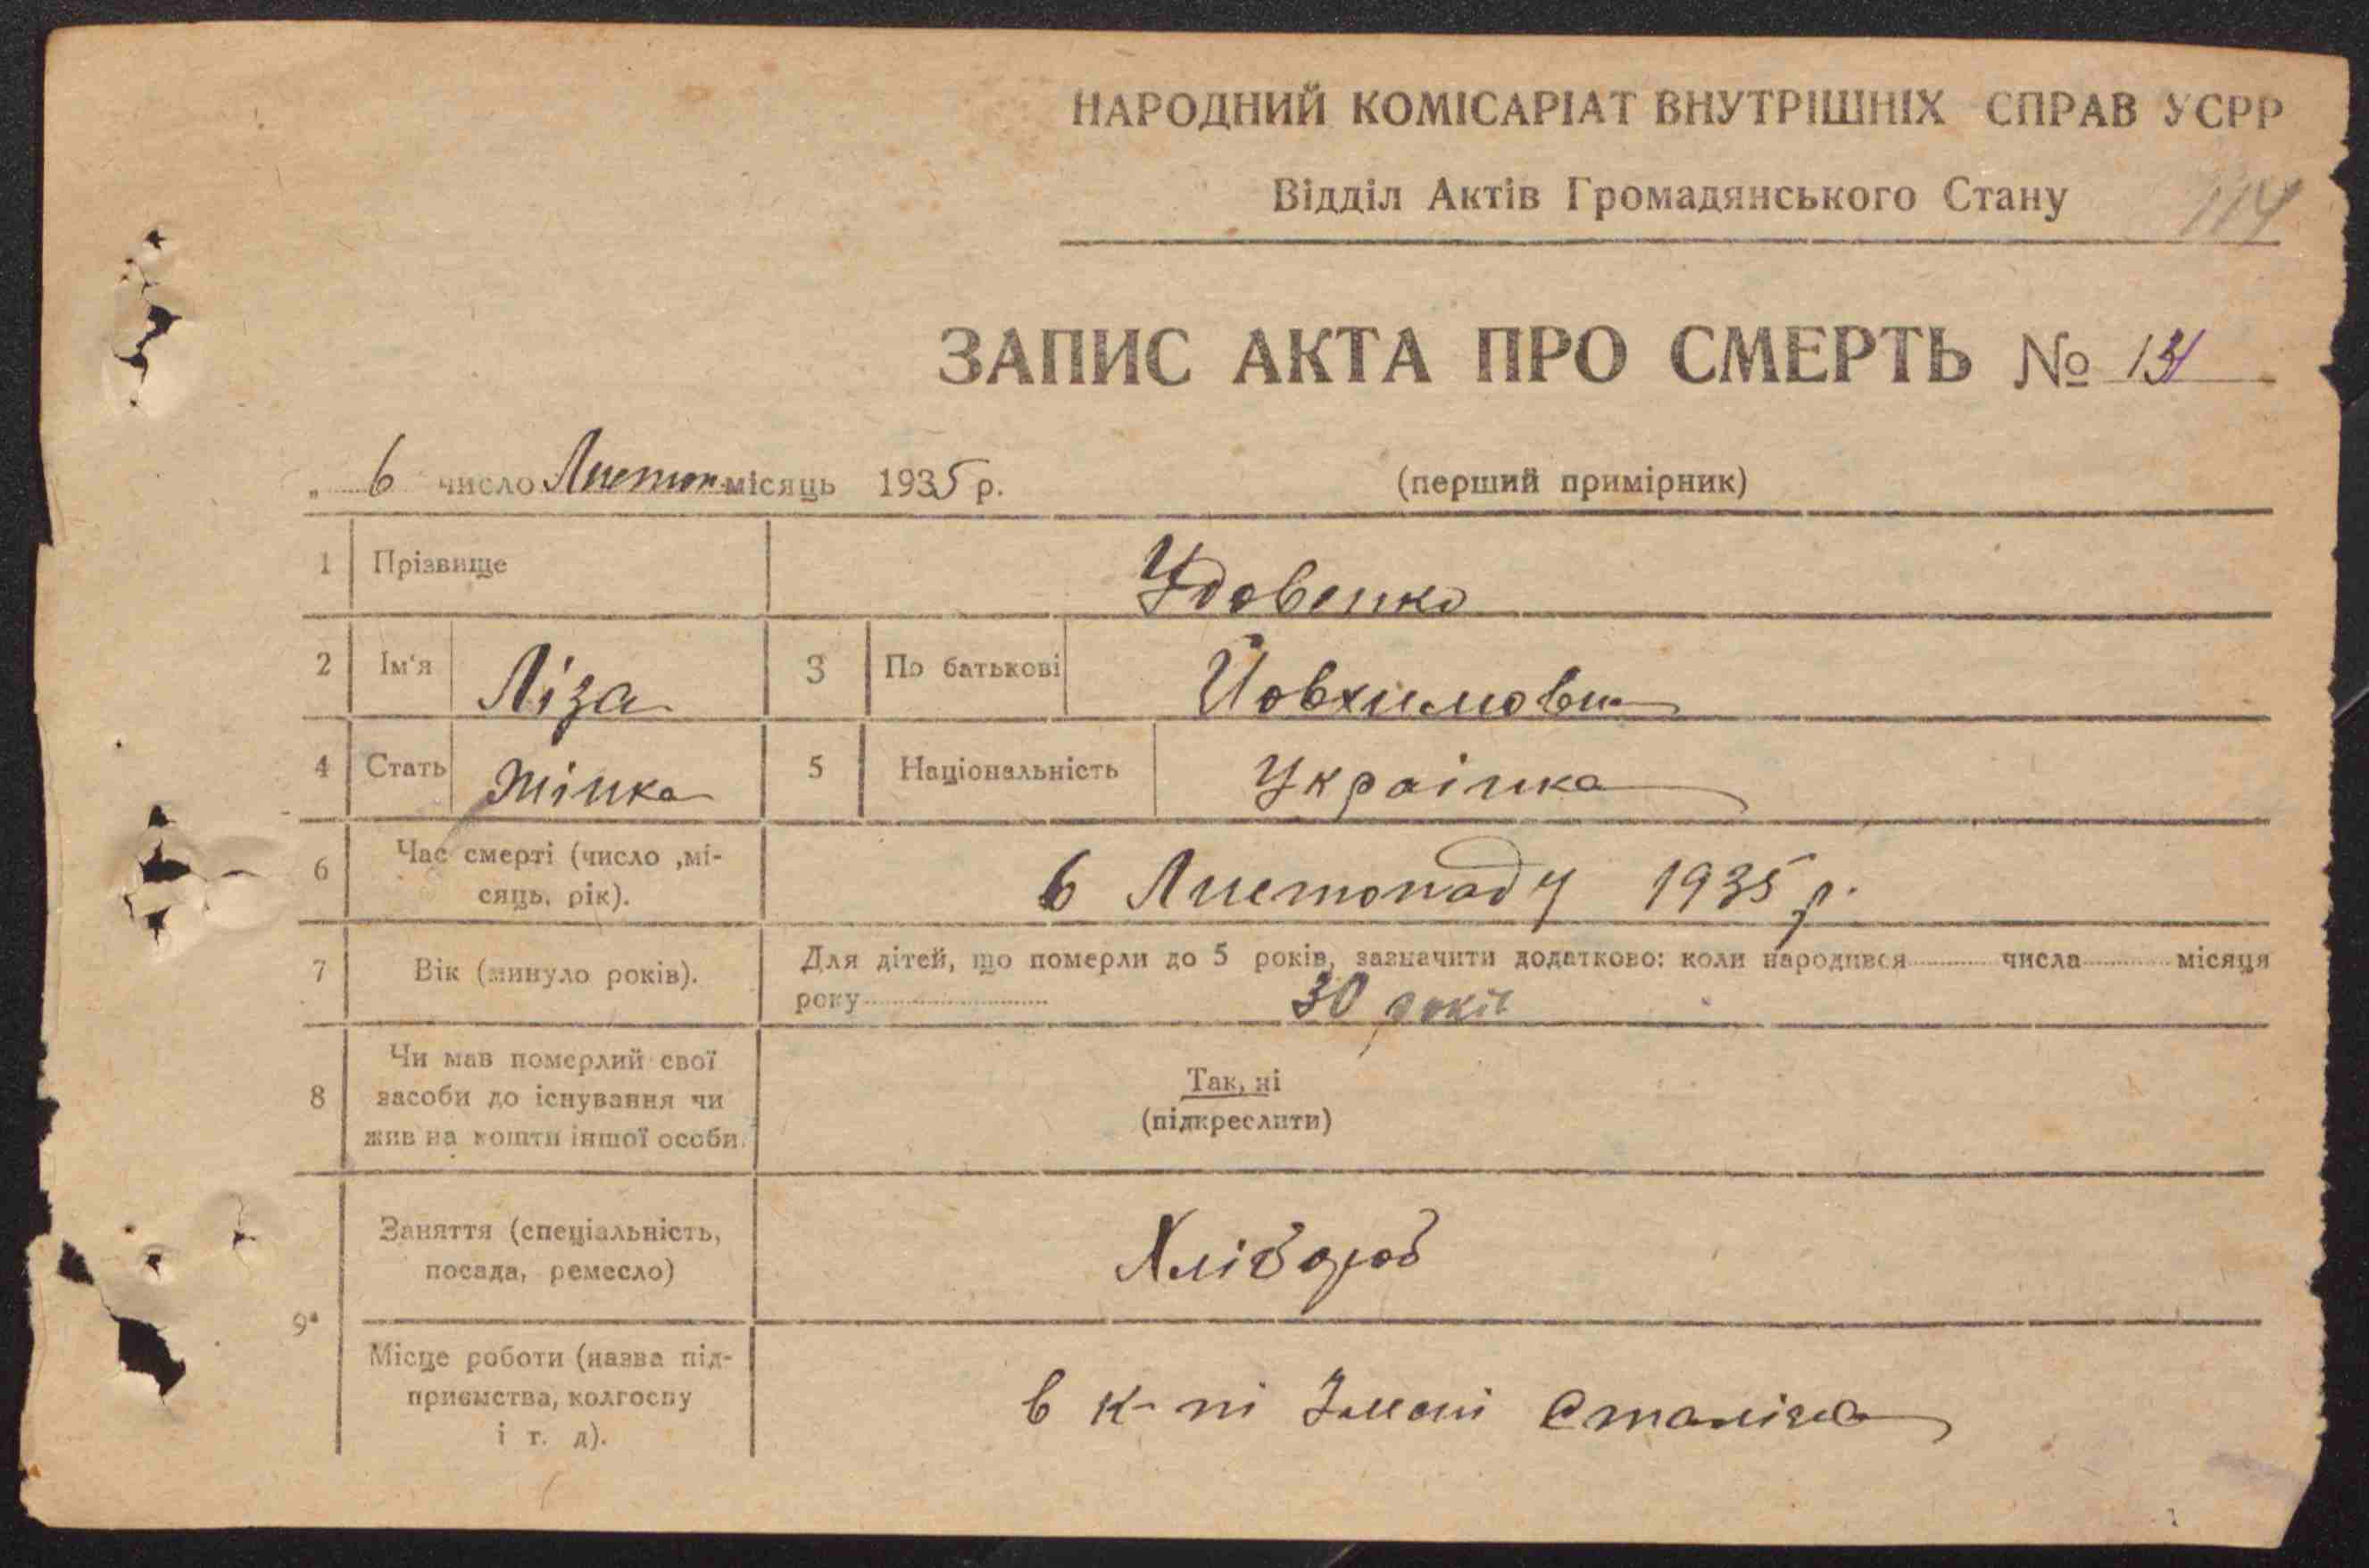 НАРОДНИЙ КОМІСАРІАТ ВНУТРІШНІХ СПРАВ УСРР
Відділ Актів Громадянського Стану
114
ЗАПИС АКТА ПРО СМЕРТЬ №
„ 6 число Листоп місяць 1935 р. (перший примірник)
1 Прізвище Удовенко
2 Ім'я Ліза 3 По батькові Йовхимовн
4 Стать жінка 5 Національність Українка
6 Час смерті (число ,мі-
сяць, рік). 6 Листопаду 1935 р.
7 Вік (минуло років). Для дітей, що померли до 5 років, зазначити додатково: коли народився числа місяця
року 30 років
8 Чи мав померлий свої
засоби до існування чи
жив на кошти іншої особи.
Так, ні
(підкреслити)
9а Заняття (спеціальність,
посада, ремесло) Хлібороб
Місце роботи (назва під-
приємства, колгоспу
і т. д).
в к-пі Імені Сталіна